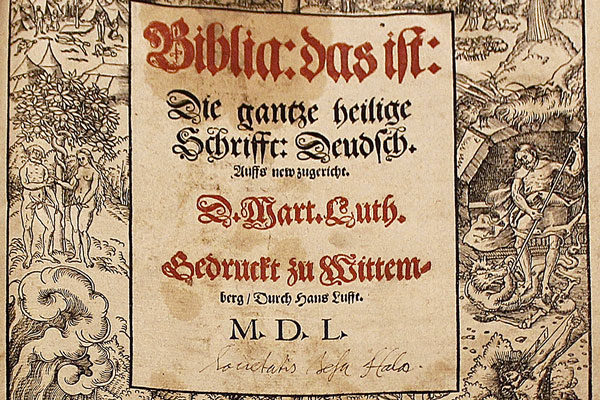 Biblia: das ist:
Die gantze heilige
Schrifft: Deudsch.
Auffs new zugericht.
D. Mart. Luth.
Gedruckt zu Wittem-
berg / Durch Hans Lufft.
M. D. L.
Societatis